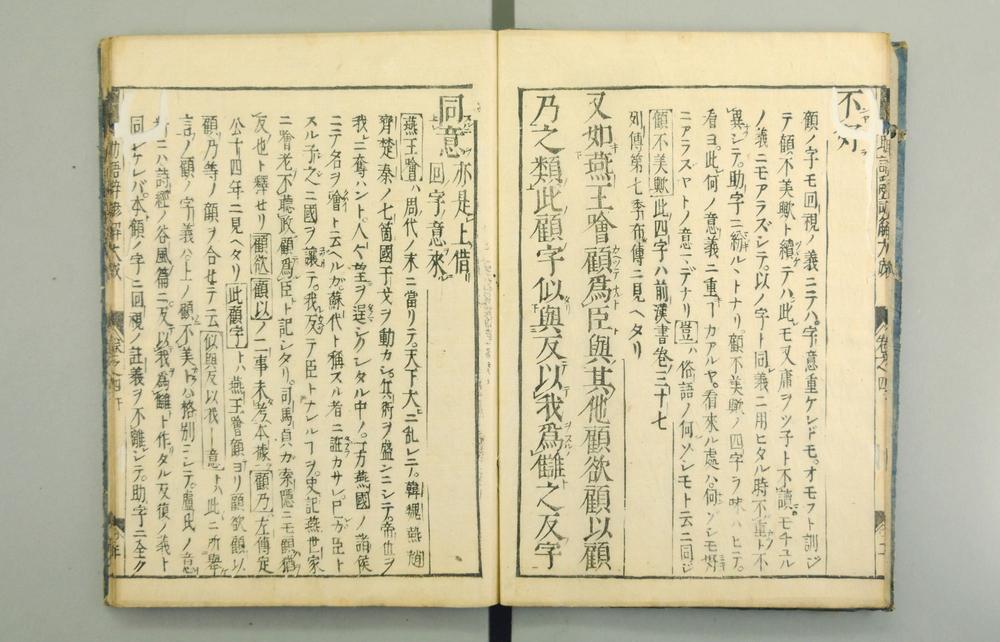 不好
顧ノ字モ回視ノ義ニテハ字意重ケレドモオモフト訓ジ
テ顧不美歟ト續テハ此モ又庸ヲツ子ト不讀モチユル
ノ義ニモアラズシテ以ノ字ト同義ニ用ヒタル時不重ト不
異シテ助字ニ紛ルヽトナリ顧不美歟ノ四字ヲ味ハヒテ
看ヨ此何ノ意義ニ重フカアルヤ看來ル處ハ何ゾシモ好
ニアラズヤトノ意マデナリ豈ハ俗語ノ何ゾシモト云ニ同ジ
顧不美歟此四字ハ前漢書卷三十七
列傳第七季布傳ニ見ヘタリ
又如燕王噲顧爲臣與其他顧欲顧以顧
乃之類此顧字似與友以我爲讎之友字
同意亦是上借
回字意來
燕王噲ハ周代ノ末ニ當リテ天下大ニ乱レテ韓魏燕趙
齊楚秦ノ七箇國干戈ヲ動カシ兵術ヲ盛シニシテ帝也ヲ
我ニ奪ハント人々望ヲ逞シケレタル中ノ一方燕國ノ諸侯
ニテ名ヲ噲ト云ヘルガ蘇代ト稱スル者ニ誑カサレ臣方臣ト
スル子之ニ國ヲ讓テ我反テ臣トナレルフヲ史記燕世家
ニ噲老不聽政顧爲臣ト記シタリ司馬貞ガ索隱ニモ顧猶
反也ト釋セリ顧欲顧以ノ二事未考本據顧乃左傳定
公十四年ニ見ヘタリ此顧字トハ燕王噲顧ヨリ顧欲顧以
顧乃等ノ顧ヲ合セテ云似與友以我一意トハ此ニ所擧
言ノ顧ノ字義ハ上ノ顧不美トハ格別ニシテ盧氏ノ意
ニハ詩經ノ谷風篇ニ反以我爲讎ト作タル反復ノ義ト
同シケレバ本顧ノ字ニ回視ノ註義ヲ不離シテ助字ニ全ク